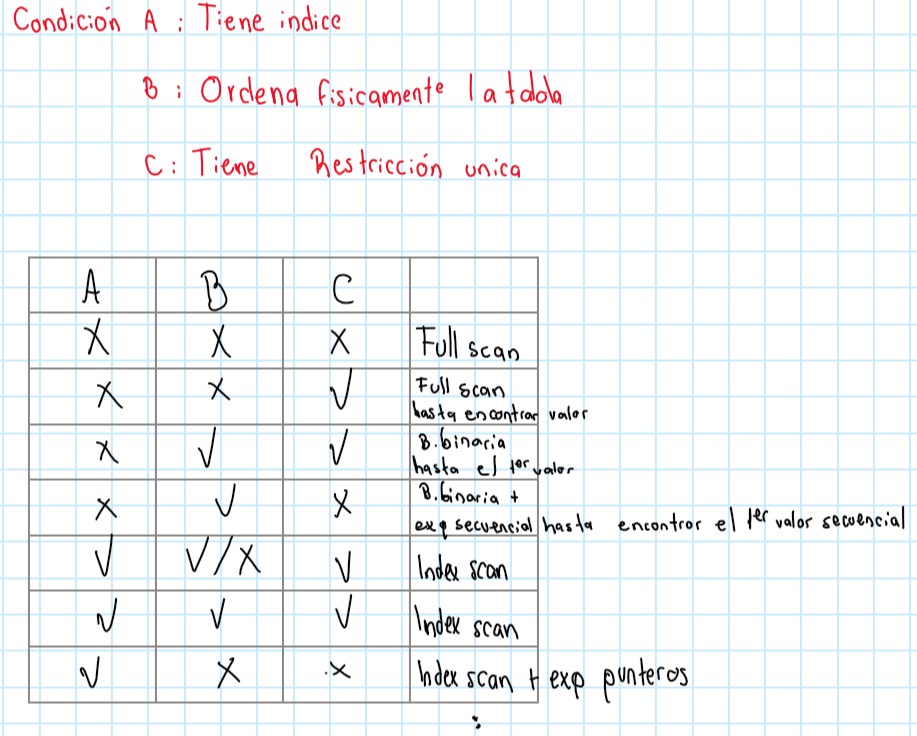 Condición A : Tiene indice
B : Ordena fisicamente la tabla
C : Tiene Restricción unica
A B C
X X X Full scan
X X √ Full scan
hasta encontrar valor
X √ √ B. binaria
hasta el 1er valor
X √ X B. binaria +
exp secuencial hasta encontrar el 1er valor secuencial
√ √/X √ Index scan
√ √ √ Index scan
√ X X Index scan + exp punteros
: